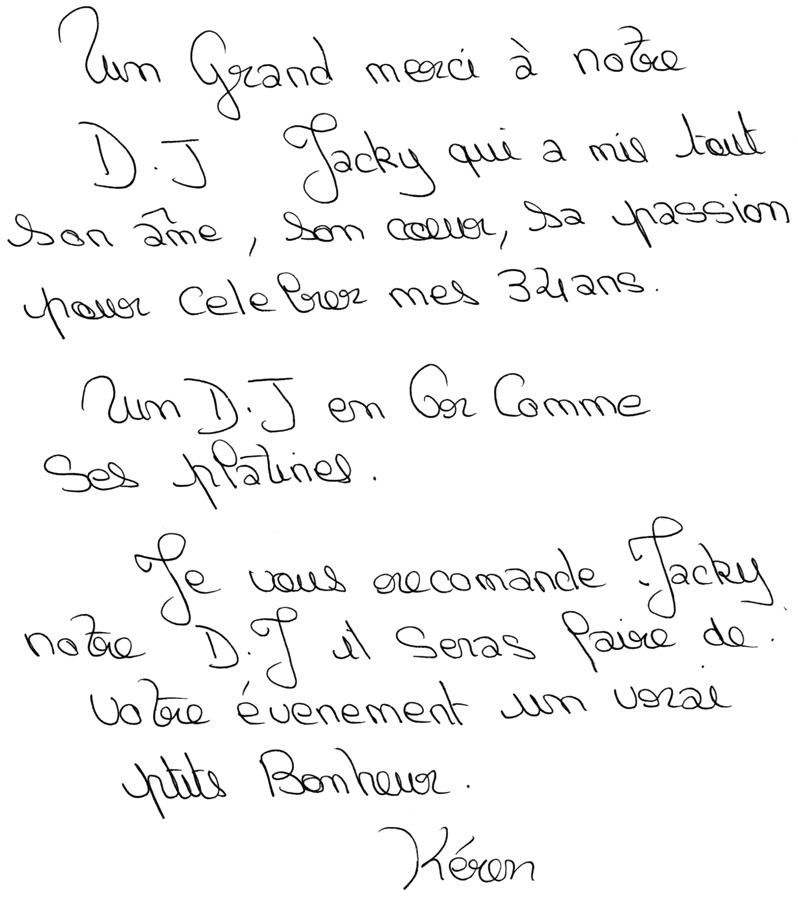 Un Grand merci à notre
D.J Jacky qui a mis tout
son âme, son cœur, sa passion
pour celebrer mes 34 ans.
Un D.J en Or Comme
Ses platines.
Je vous recomande Jacky
notre D.J il seras faire de
votre évenement un vrai
ptits Bonheur.
Kéren